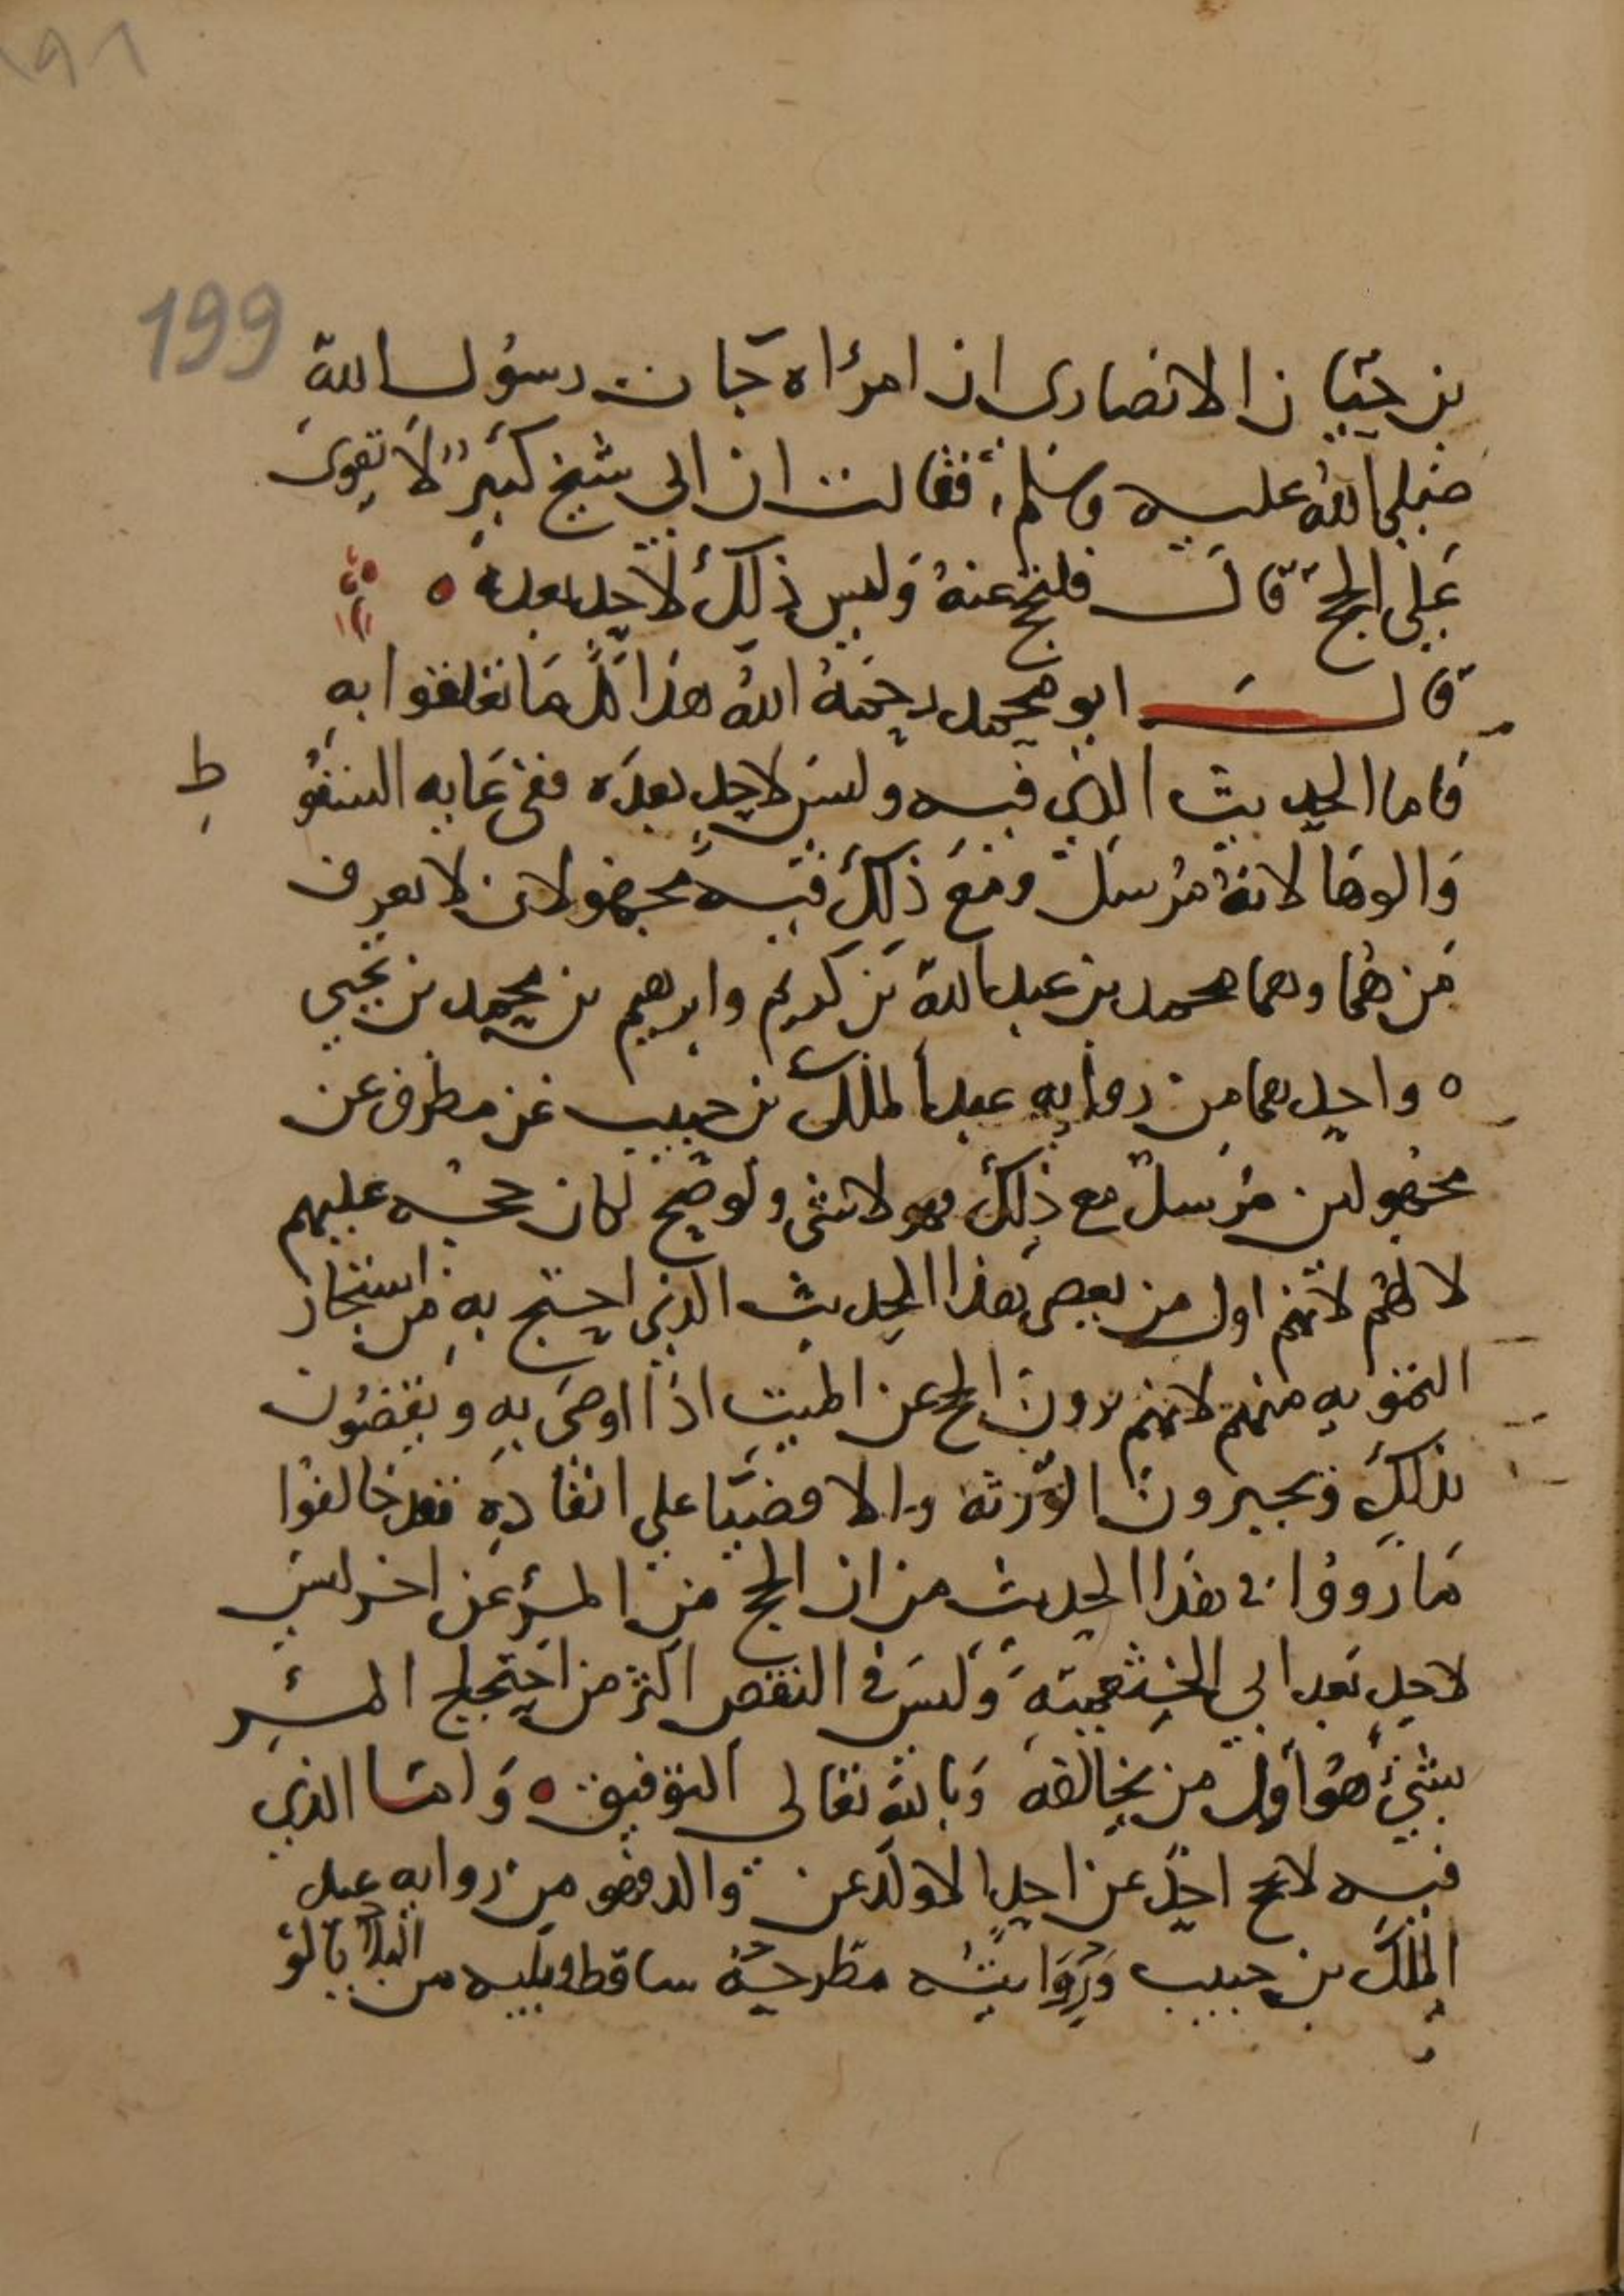 199
بن حبان الانصارى ان امرأه جات رسول الله
صلى الله عليه وسلم فقالت ان ابي شيخ كبير لا يقوى
على الحج قال فلتحج عنه وليس ذلك لاحد بعده
قال ابو محمد رحمه الله هذا كل ما تعلقوا به
فاما الحديث الذي فيه وليس لاحد بعده ففي غايه السقو
ط
والوها لانه مرسل ومع ذلك فيه مجهولان لا يعرف
من هما وهما محمد بن عبد الله بن كريم وابرهيم بن محمد بن يحيى
واحدهما من روايه عبد الملك بن حبيب عن مطرف عن
مجهولين مرسل مع ذلك فهو لا شى ولو صح لكان حجه عليهم
لا لهم لانهم اول من بعص هذا الحديث الذي احتج به من استجاز
التمويه منهم لانهم يرون الحج عن الميت اذا اوصى به ويقضون
بذلك ويجبرون الورثه والاوصيا على انفاذه فقد خالفوا
ما رووا في هذا الحديث من ان الحج من المرء عن اخر ليس
لاحد بعد ابي الخثعميه وليس في النقص اكثر من احتجاج المر
بشيء هو اول من يخالفه وبالله تعالى التوفيق واما الذي
فيه لا يحج احد عن احد الا ولد عن والد فهو من روايه عبد
الملك بن حبيب وروايته مطرحه ساقط ويليه من البلايا لو